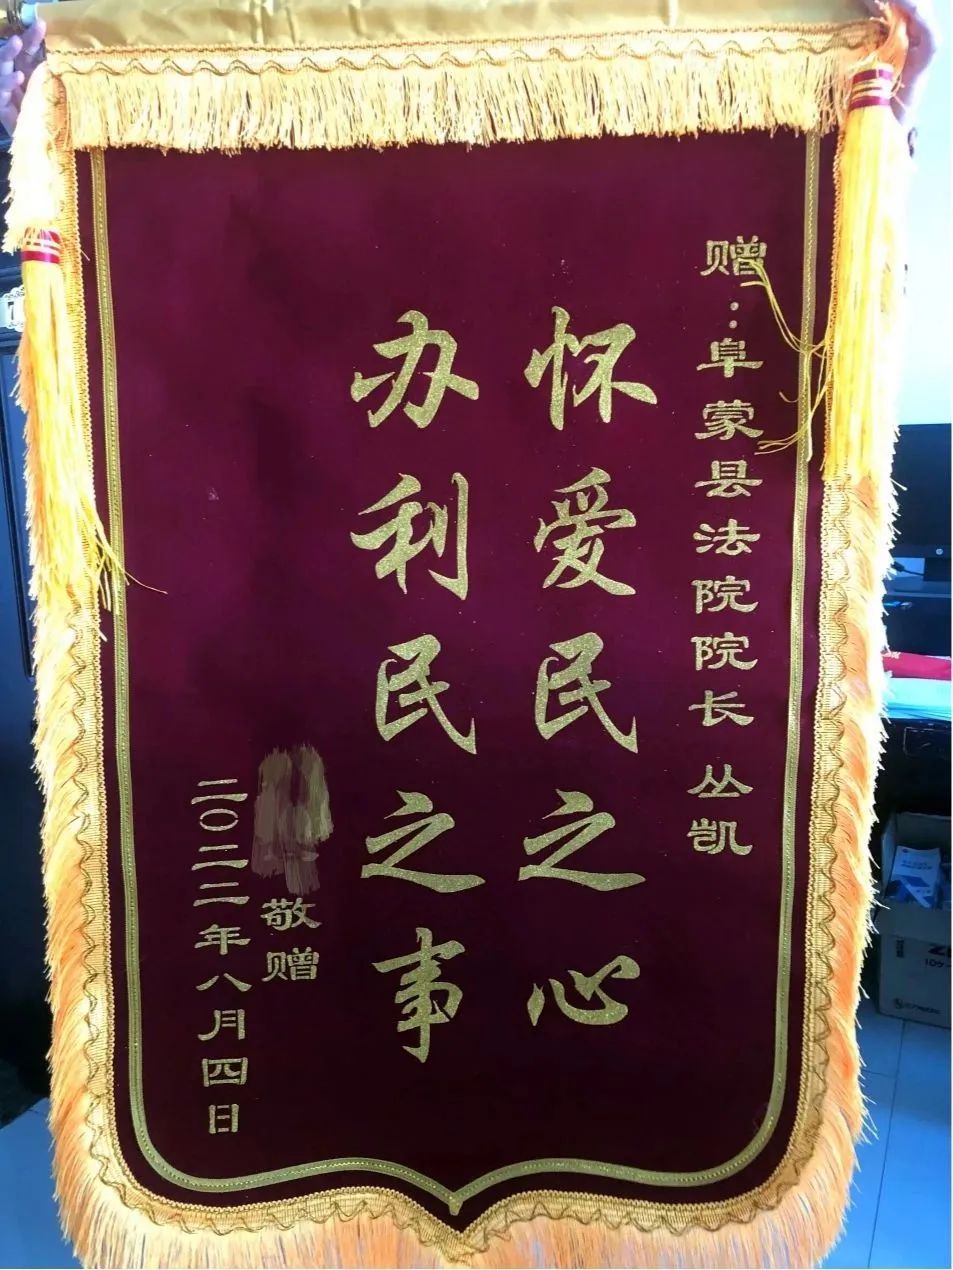 赠：阜蒙县法院院长丛凯
怀爱民之心
办利民之事
敬赠
二〇二二年八月四日